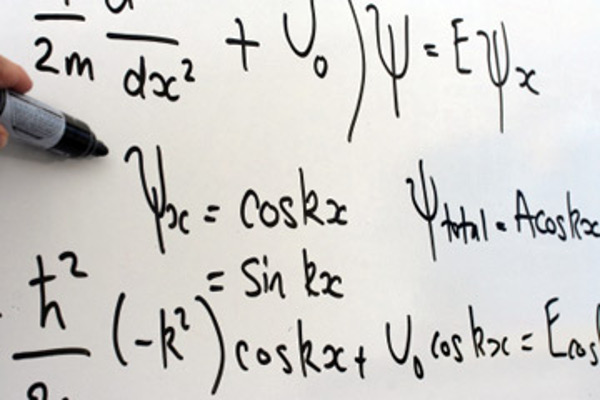 2m dx² + U₀ ) ψ = Eψx
ψx = coskx ψtotal = Acoskx
= sin kx
ħ² (-k²) coskx + U₀ coskx = Ecos